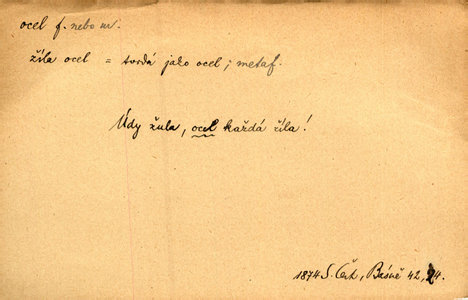 ocel f. nebo m.
žíla ocel = tvrdá jako ocel; metaf.
Údy žula, ocel každá žíla!
1874 S. Čch, Básně 42, 24.